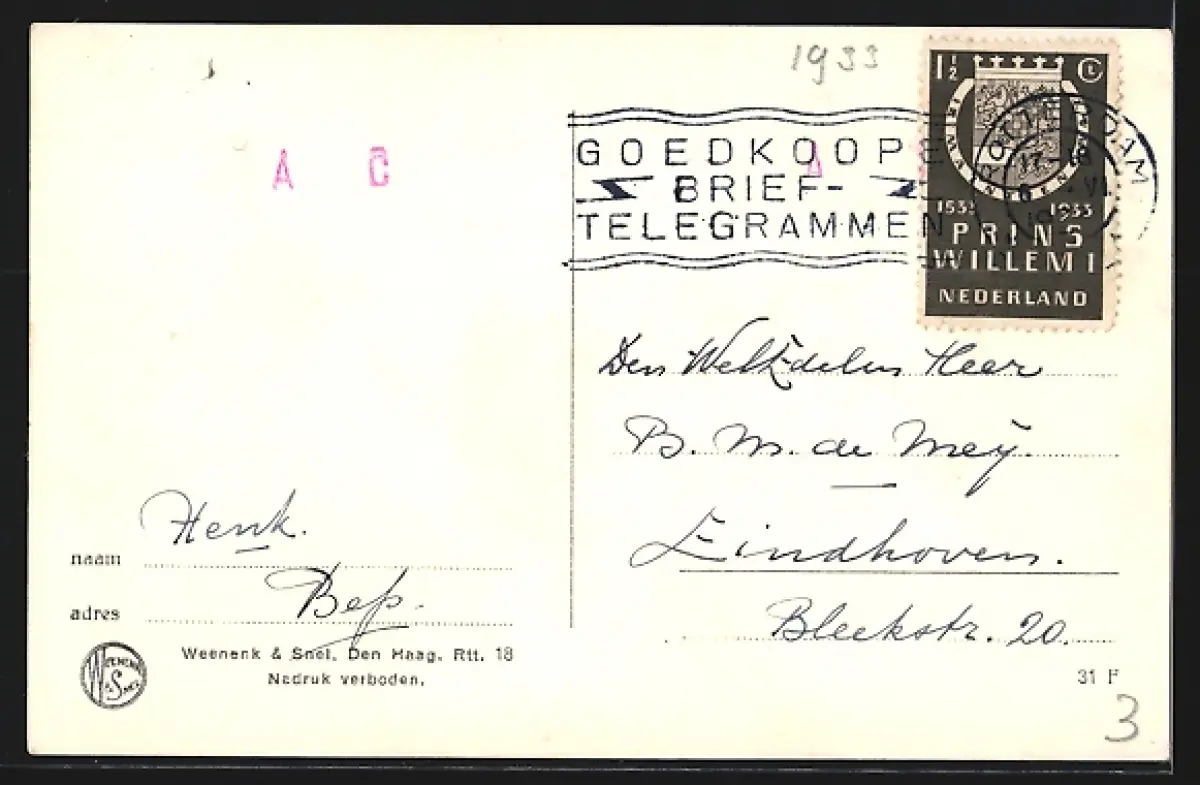 1933
A C
GOEDKOOPE
BRIEF-
TELEGRAMMEN
ROTTERDAM
17-18
6 VI
1½ C
1533 1933
PRINS
WILLEM I
NEDERLAND
Den WelEdelen Heer
B. M. de Mey.
Eindhoven.
Bleekstr. 20.
Henk.
naam
Bep.
adres
Weenenk & Snel, Den Haag. Rtt. 18
Nadruk verboden.
31 F
3